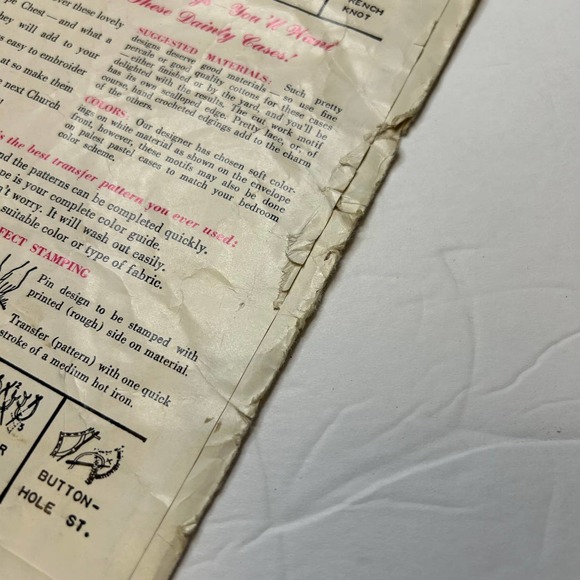 RENCH
KNOT
You'll Want
These Dainty Cases!
ver these lovely
pe Chest — and what a
they will add to your
is easy to embroider
at so make them
e next Church
SUGGESTED MATERIALS: Such pretty
designs deserve good materials — so use fine
percale or good quality cottons for these cases
— either finished or by the yard, and you'll be
delighted with the results. The cut work motif
has its own scalloped edge. Pretty lace, or, of
course, hand crocheted edgings add to the charm
of the others.
COLORS: Our designer has chosen soft color-
ings on white material as shown on the envelope
front, however, these motifs may also be done
on palest pastel cases to match your bedroom
color scheme.
is the best transfer pattern you ever used:
nd the patterns can be completed quickly.
pe is your complete color guide.
't worry. It will wash out easily.
suitable color or type of fabric.
FECT STAMPING
Pin design to be stamped with
printed (rough) side on material.
Transfer (pattern) with one quick
stroke of a medium hot iron.
R
BUTTON-
HOLE ST.